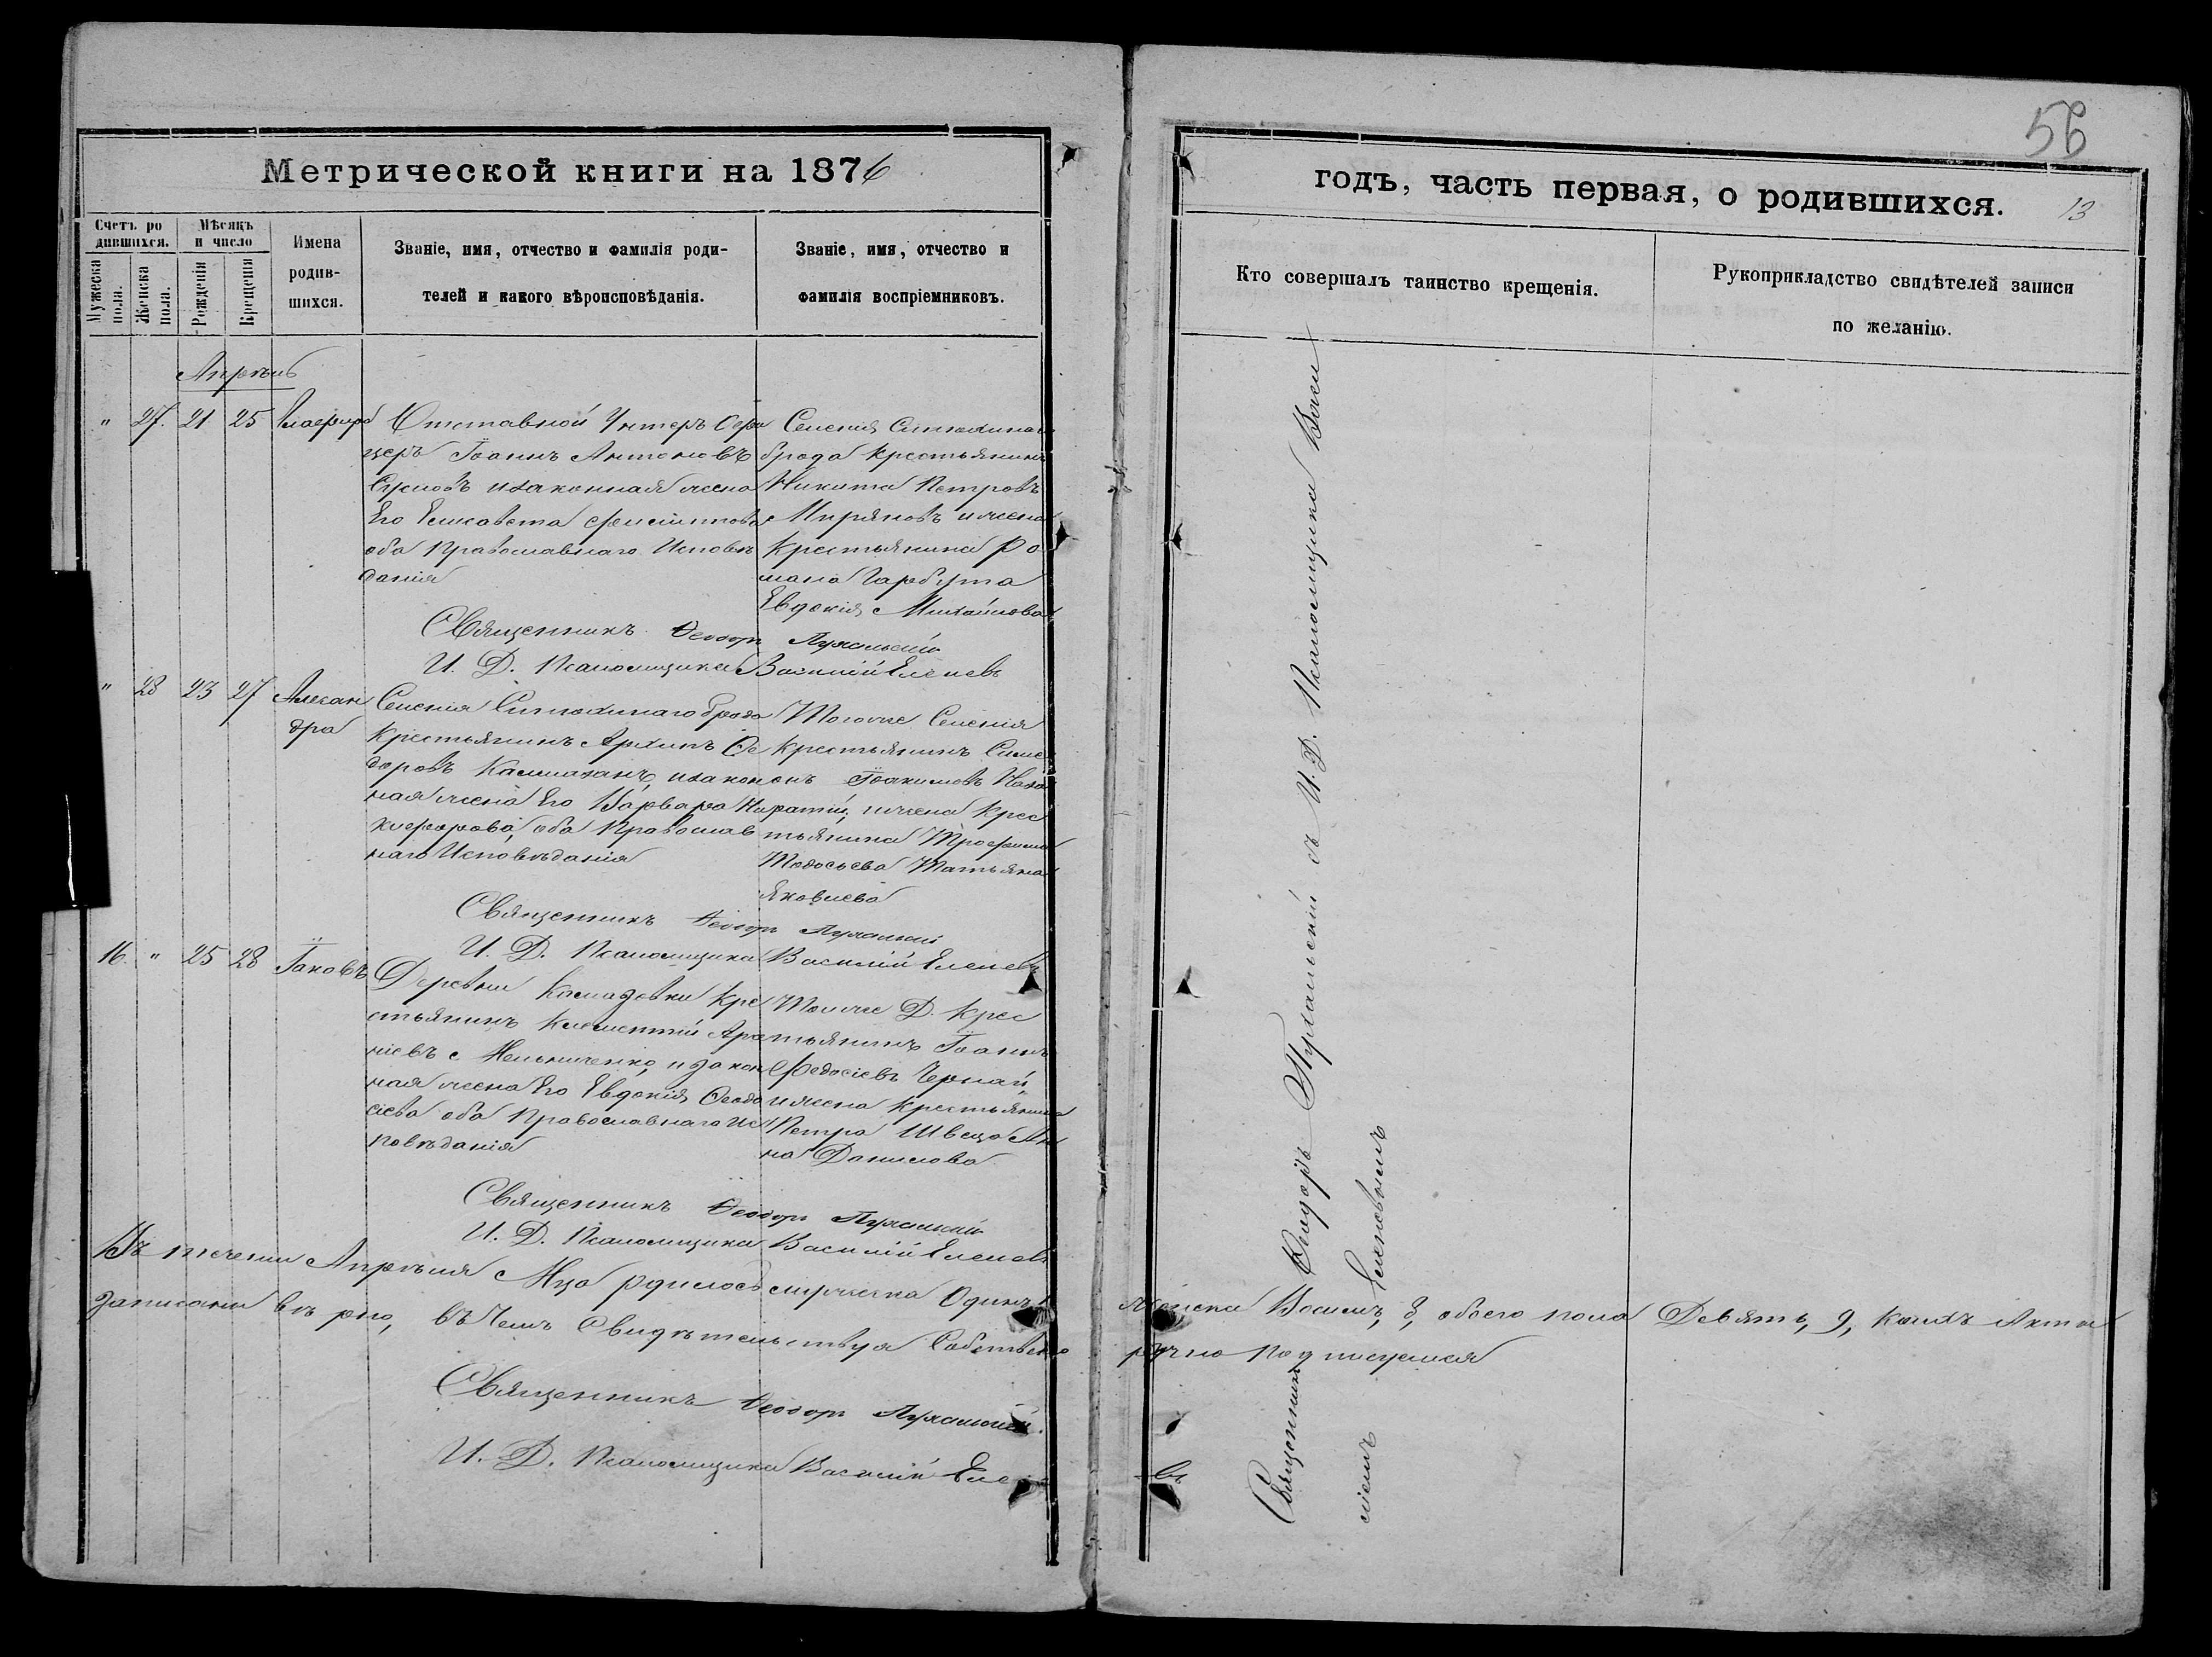 Метрической книги на 1876
Счетъ ро
дившихся.
Мѣсяцъ
и число
Мужеска
пола.
Женска
пола.
Рожденія
Крещенія
Имена
родив-
шихся.
Званіе, имя, отчество и фамилія роди-
телей и какого вѣроисповѣданія.
Званіе, имя, отчество и
фамилія воспріемниковъ.
Апрѣль
" 27. 21 25
Отставной Унтеръ Офи
церъ Іоаннъ Антоновъ
и законная жена
Его Елисавета
оба Православнаго Исповѣ
данія
Селенія
брода крестьянинъ
Никита Петровъ
и жена
Крестьянина Ро
мана Гарбуза
Евдокія Михайлова
Священникъ Ѳеодоръ
И. Д. Псаломщика Василій Еленевъ
" 28 23 27 Алексан
дра
Селенія брода
Крестьянинъ Архипъ Ѳе
доровъ и закон
ная жена Его Варвара Ни
кифорова, оба Православ
наго Исповѣданія
Тогоже Селенія
Крестьянинъ
Іоакимовъ
и жена Крес
тьянина Трофима
Тодосьева Татьяна
Яковлева
Священникъ Ѳеодоръ
И. Д. Псаломщика Василій Еленевъ
16. " 25 28 Іаковъ
Деревни Кре
стьянинъ Климентій
ніевъ Мельниченко, и закон
ная жена Его Евдокія Ѳеодо
сіева оба Православнаго Ис
повѣданія
Тойже Д. Крес
тьянинъ Іоаннъ
Федосіевъ Чернай,
и жена крестьянина
Петра Швеца Ан
на Данилова
Священникъ Ѳеодоръ
И. Д. Псаломщика Василій Еленевъ
Въ теченіи Апрѣля Мца родилось мужеска Одинъ 1
записаны вѣрно, въ Чемъ Свидѣтельствуя Собственно
Священникъ Ѳеодоръ
И. Д. Псаломщика Василій Еле
56
годъ, часть первая, о родившихся. 13
Кто совершалъ таинство крещенія.
Рукоприкладство свидѣтелей записи
по желанію.
Священникъ Ѳеодоръ съ И. Д. Псаломщика Васи
ліемъ Еленевымъ
женска Восемь, 8, обоего пола Девять, 9, коихъ Акты
ручно подписуемся
въ